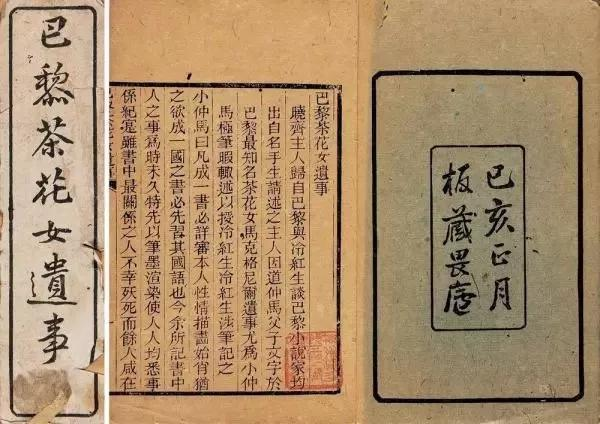 巴黎茶花女遺事
巴黎茶花女遺事
曉齋主人歸自巴黎與冷紅生談巴黎小說家均
出自名手生請述之主人因道仲馬父子文字於
巴黎最知名茶花女馬克格尼爾遺事尤爲小仲
馬極筆暇輒述以授冷紅生冷紅生涉筆記之
小仲馬曰凡成一書必詳審本人性情描畫始肖猶
之欲成一國之書必先習其國語也今余所記書中
人之事爲時未久特先以筆墨渲染使人人均悉事
係紀寔雖書中最關係之人不幸夭死而餘人咸在
己亥正月
板藏畏廬